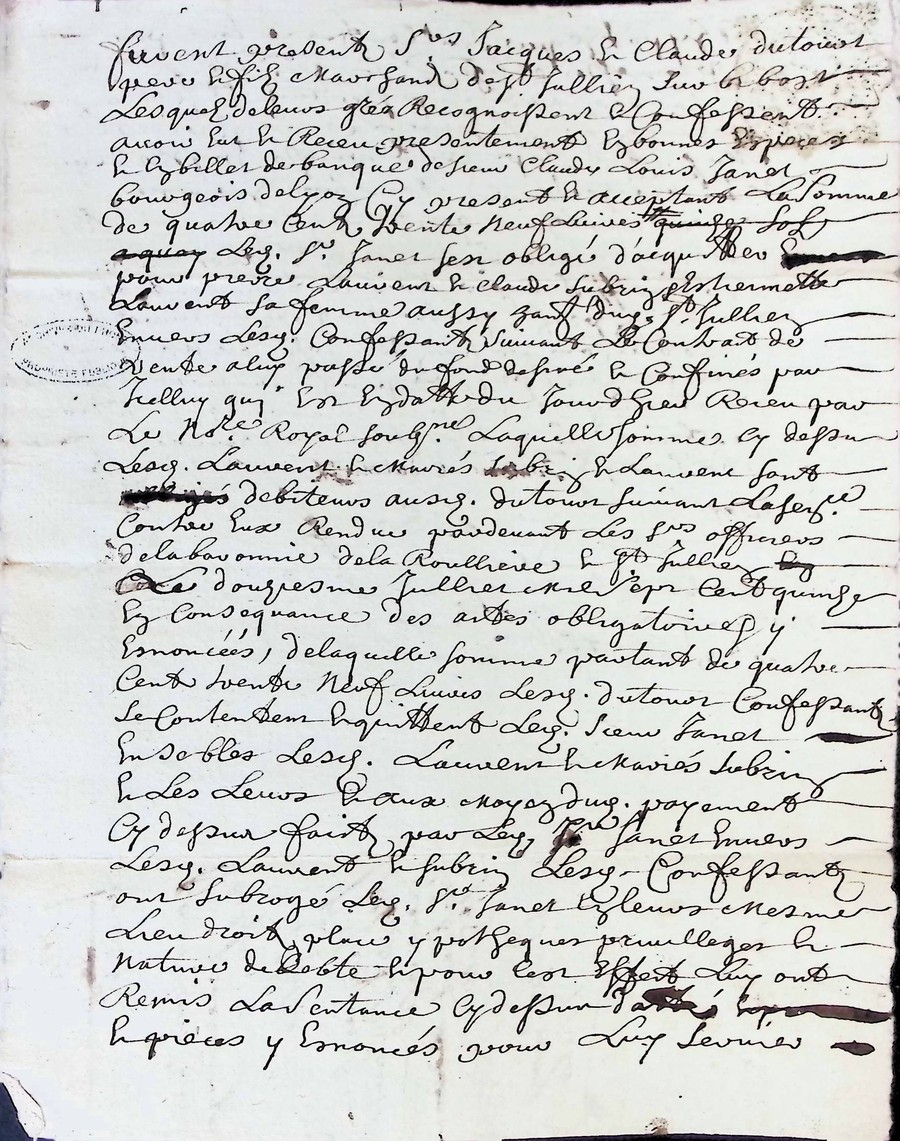 furent presents Srs Jacques et Claude dutour
pere et fils Marchands de st Jullien sur bibost
Lesquels de leurs grés Recognoissent et Confessent
avoir Eut et Receu presentement En bonnes Especes
et En billet de banque de sieur Claude Louis Janet
bourgeois de lyon Cy present et acceptant La somme
de quatre Cents trente Neuf Livres quinze sols
a quoy Led. Sr. Janet sest obligé d'acquitter
pour pierre Laurent et Claude subrin et
Laurent sa femme aussy dud. St. Jullien
Envers Lesd. Confessants suivant Le Contrait de
Vente a luy passé du fond designé et Confinés par
Icelluy quj Est En datte du Jourdhier Receu par
Le No.re Royal soubs.né Laquelle somme Cy dessus
Lesd. Laurent et Mariés subrin et Laurent sont
debiteurs ausd. dutour suivant La sen.ce
Contre Eux Rendue pardevant Les Srs officiers
de la baronnie de la Roulliere et St Jullien
Le douziesme Juillet Mil sept Cent quinze
En Consequance des actes obligatoires y
Ennoncéés, de laquelle somme partant de quatre
Cents trente Neuf Livres Lesd. dutour Confessants
se Contentent En quittent Led. sieur Janet
Ensembles Lesd. Laurent et Mariés subrin
et Les Leurs et aux Moyen dud. payement
Cy dessus fait par Led. Sr Janet Envers
Lesd. Laurent et subrin Lesd. Confessants
ont subrogé Led. Sr. Janet En leurs Mesme
Lieu droits place ypotheques privilleges et
Nature de debte et pour Cest Effect Luy ont
Remis La sentance Cy dessus datté
Et pieces y Ennoncés pour Luy servir